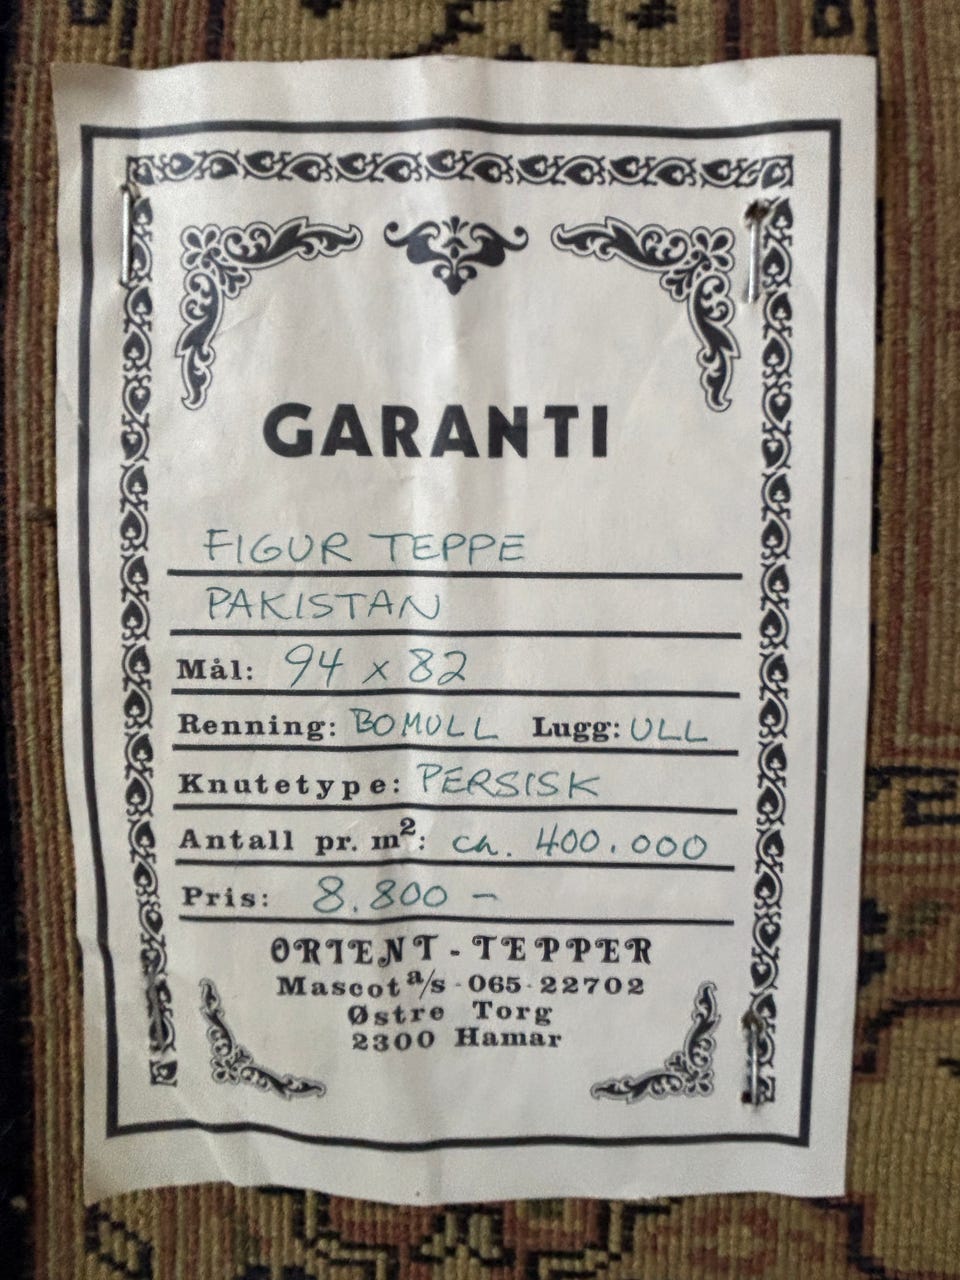 GARANTI
FIGUR TEPPE
PAKISTAN
Mål: 94 x 82
Renning: BOMULL Lugg: ULL
Knutetype: PERSISK
Antall pr. m²: ca. 400.000
Pris: 8.800 –
ORIENT-TEPPER
Mascot a/s · 065 · 22702
Østre Torg
2300 Hamar